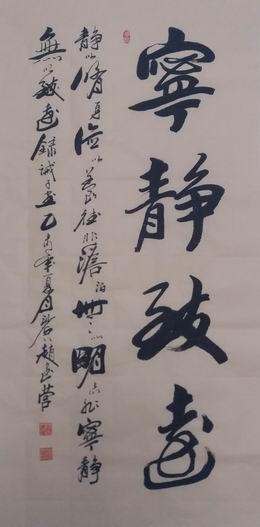 寧靜致遠
靜以脩身儉以養德非澹泊無以明志非寧靜
無以致遠錄誡子書乙未年夏月